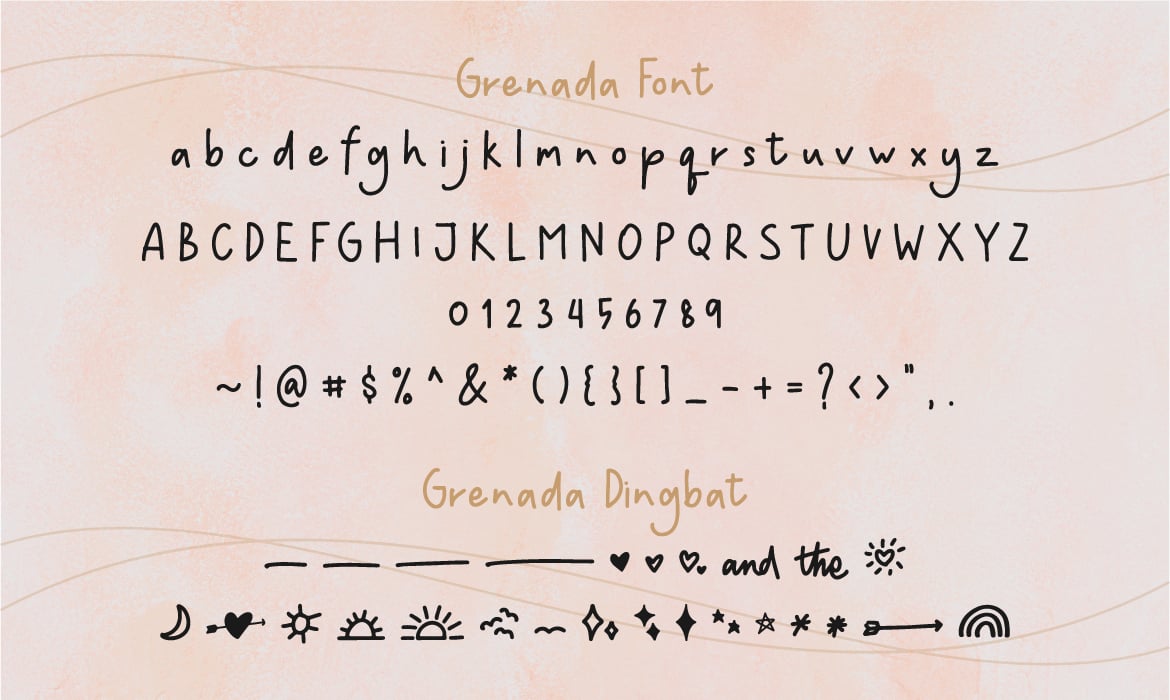 Grenada Font
a b c d e f g h i j k l m n o p q r s t u v w x y z
A B C D E F G H I J K L M N O P Q R S T U V W X Y Z
0 1 2 3 4 5 6 7 8 9
~ ! @ # $ % ^ & * ( ) { } [ ] _ - + = ? < > " , .
Grenada Dingbat
and the